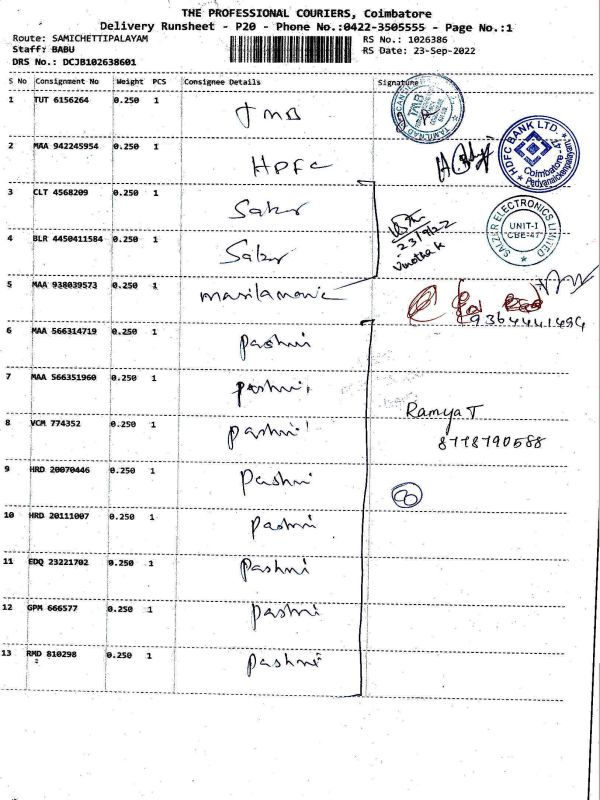 THE PROFESSIONAL COURIERS, Coimbatore
Delivery Runsheet - P20 - Phone No.:0422-3505555 - Page No.:1
Route: SAMICHETTIPALAYAM
RS No.: 1026386
Staff: BABU
RS Date: 23-Sep-2022
DRS No.: DCJB102638601
S No Consignment No Weight PCS Consignee Details Signature
1 TUT 6156264 0.250 1 TMB
TMB
2 MAA 942245954 0.250 1 HDFC
HDFC BANK LTD.
Coimbatore-47
3 CLT 4568209 0.250 1
SALZER ELECTRONICS LIMITED
UNIT-I
CBE-47
23/9/22
Vinotha K
4 BLR 4450411584 0.250 1
5 MAA 938039573 0.250 1
9364441494
6 MAA 566314719 0.250 1 pashni
7 MAA 566351960 0.250 1 pashni
8 VCM 774352 0.250 1 pashni
Ramya T
8778790588
9 HRD 20070446 0.250 1 Pashni
8
10 HRD 20111007 0.250 1 pashni
11 EDQ 23221702 0.250 1 pashni
12 GPM 666577 0.250 1 pashni
13 RMD 810298 0.250 1 pashni